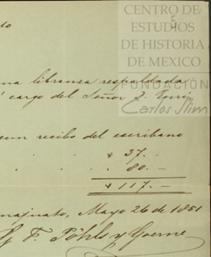 CENTRO DE
ESTUDIOS
DE HISTORIA
DE MEXICO
FUNDACIÓN
Carlos Slim
una libranza respaldada
cargo del Señor J.
un recibo del escribano
" 37.-
" 80.-
$ 117.-
Mayo 26 de 1851
F. Pöhls y Goerne